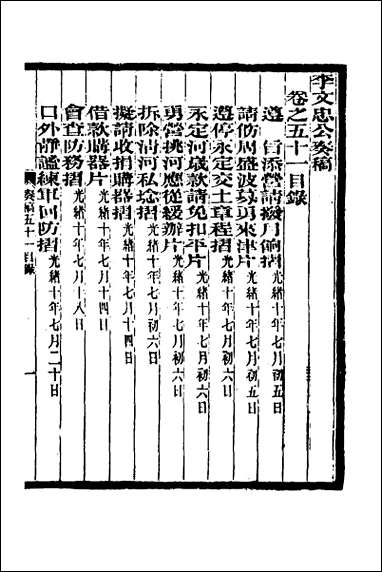 李文忠公奏稿
卷之五十一目錄
遵 旨添營請撥月餉摺 光緒十年七月初五日
請飭周盛波募勇來津片 光緒十年七月初五日
遵停永定交土章程摺 光緒十年七月初六日
永定河歲款請免扣平片 光緒十年七月初六日
勇營挑河應從緩辦片 光緒十年七月初六日
拆除沽河私埝摺 光緒十年七月初六日
擬請收捐購器摺 光緒十年七月十四日
借款購器片 光緒十年七月十四日
會查防務摺 光緒十年七月十八日
口外靜謐練軍回防摺 光緒十年七月二十日
奏稿五十一目錄 一